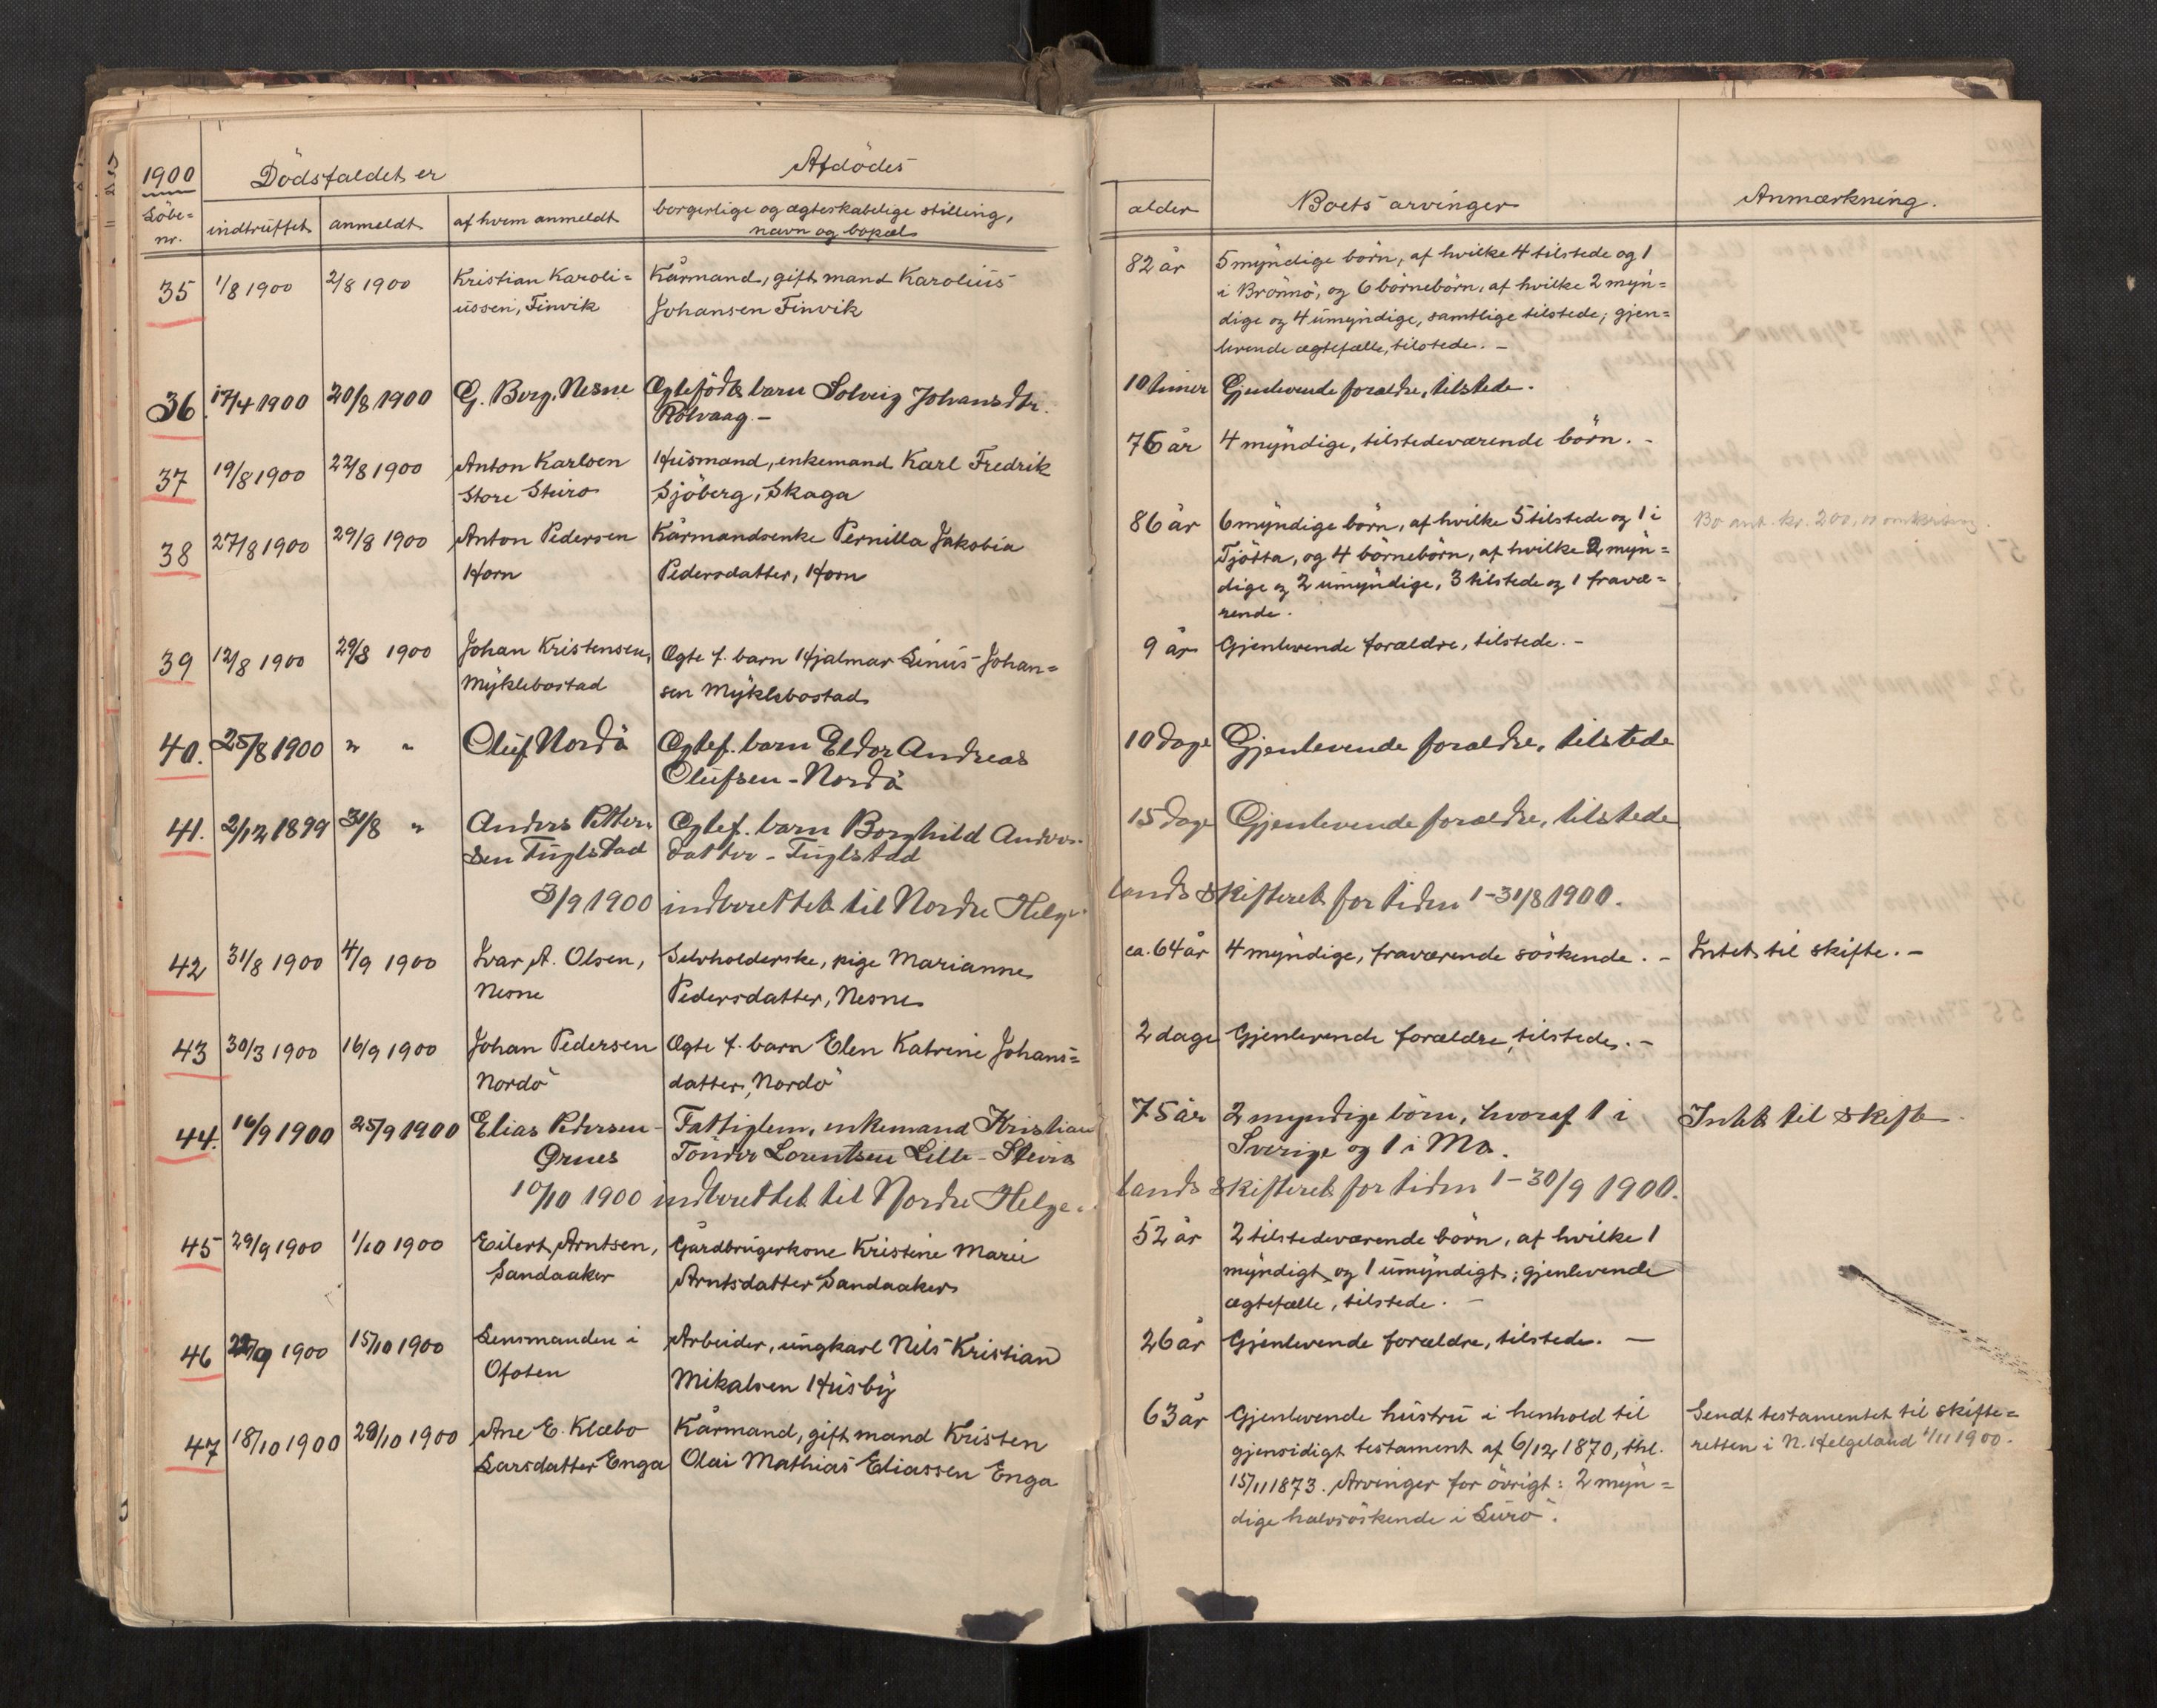 1900
Dödsfaldet er
Afdödes
Löbe=
nr.
indtruffet
anmeldt
af hvem anmeldt
borgerlige og ægteskabelige stilling,
navn og bopæl
alder
Boets arvinger
Anmærkning.
35 1/8 1900 2/8 1900 Kristian Karoli= Kårmand, gift mand Karolius
ussen, Finvik Johansen Finvik
82 år 5 myndige börn, af hvilke 4 tilstede og 1
i Brönnö, og 6 börnebörn, af hvilke 2 myn=
dige og 4 umyndige, samtlige tilstede; gjen=
levende ægtefælle, tilstede. -
36 17/4 1900 20/8 1900 G. Berg, Nesne Ægtefödt barn Solveig Johansdtr.
Rölvaag. -
10 timer Gjenlevende forældre, tilstede.
37 19/8 1900 22/8 1900 Anton Karlsen Husmand, enkemand Karl Fredrik
Store Steiro Sjöberg, Skaga
76 år 4 myndige, tilstedeværende börn. -
38 27/8 1900 29/8 1900 Anton Pedersen Kårmandsenke Pernilla Jakobia
Horn Pedersdatter, Horn
86 år 6 myndige börn, af hvilke 5 tilstede og 1 i Bo ant. kr. 200,00 omkring.
Tjötta, og 4 börnebörn, af hvilke 2 myn=
dige og 2 umyndige, 3 tilstede og 1 fravæ=
rende.
39 12/8 1900 29/8 1900 Johan Kristensen, Ægte f. barn Hjalmar Linus Johan=
Myklebostad sen Myklebostad
9 år Gjenlevende forældre, tilstede. -
40. 25/8 1900 " " Oluf Nordö Ægtef. barn Eldor Andreas
Olufsen - Nordö
10 dage Gjenlevende forældre, tilstede
41. 2/12 1899 31/8 " Anders Petter= Ægtef. barn Borghild Anders=
sen Fuglstad datter - Fuglstad
15 dage Gjenlevende forældre, tilstede
3/9 1900 indberettet til Nordre Helge=
lands skifteret for tiden 1-31/8 1900.
42 31/8 1900 4/9 1900 Ivar A. Olsen, Selvholderske, pige Marianne
Nesne Pedersdatter, Nesne
ca. 64 år 4 myndige, fraværende söskende. - Intet til skifte. -
43 30/3 1900 16/9 1900 Johan Pedersen Ægte f. barn Elen Katrine Johans=
Nordö datter, Nordö
2 dage Gjenlevende forældre, tilstede. -
44. 16/9 1900 25/9 1900 Elias Pedersen - Fattiglem, enkemand Kristian
Ørnes Tönder Lorentsen Lille - Steiro
75 år 2 myndige börn, hvoraf 1 i Intet til skifte
Sverige og 1 i Mo.
10/10 1900 indberettet til Nordre Helge=
lands skifteret for tiden 1-30/9 1900.
45 29/9 1900 1/10 1900 Eilert Arntsen, Gårdbrugerkone Kristine Marie
Sandaaker Arntsdatter Sandaaker
52 år 2 tilstedeværende börn, af hvilke 1
myndigt og 1 umyndigt; gjenlevende
ægtefælle, tilstede. -
46 22/9 1900 15/10 1900 Lensmanden i Arbeider, ungkarl Nils Kristian
Ofoten Mikalsen Husby
26 år Gjenlevende forældre, tilstede. -
47 18/10 1900 29/10 1900 Ane E. Klæbo Kårmand, gift mand Kristen
Larsdatter Enga Olai Mathias Eliassen Enga
63 år Gjenlevende hustru i henhold til Sendt testamentet til skifte=
gjensidigt testament af 6/12 1870, thl. retten i N. Helgeland 1/11 1900.
15/11 1873. Arvinger for övrigt: 2 myn=
dige halvsöskende i Lurö.